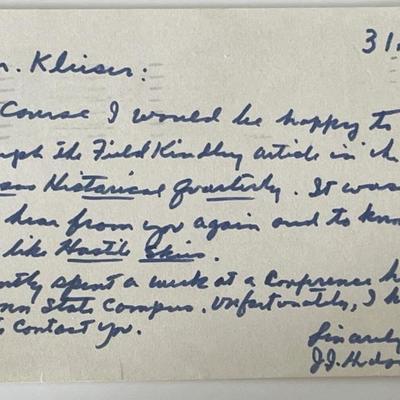 31
r. Klieser:
Course I would be happy to
graph the Field Kindley article in the
sas Historical Quarterly. It was
hear from you again and to know
like Hostile Skies.
ently spent a week at a Conference he
enn State Campus. Unfortunately, I
to contact you.
Sincerely
J.J. Hudso